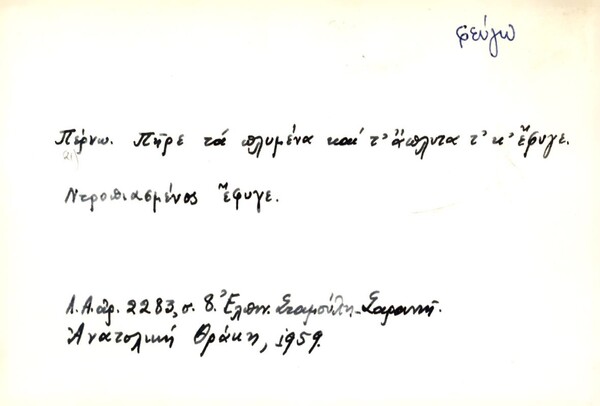 φεύγω
Πέρνω. Πῆρε τά πλυμένα καί τ' ἄπλυτα τ' κ' ἔφυγε.
Ντροπιασμένος ἔφυγε.
Λ.Α. ἀρ. 2283, σ. 8. Ἐλπιν. Σταμούλη-Σαραντῆ.
Ἀνατολική Θράκη, 1959.